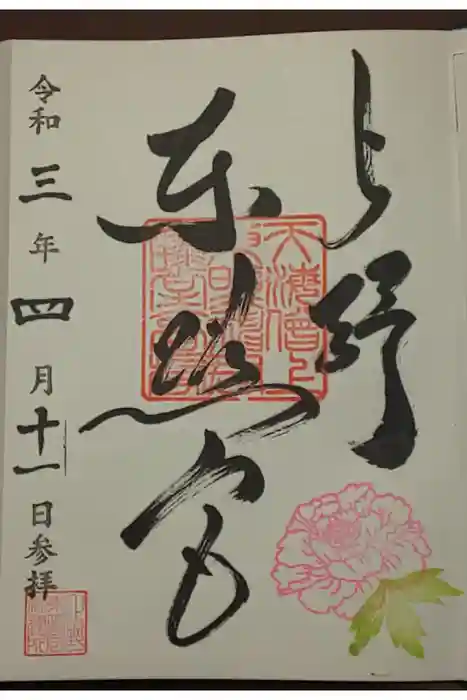 上野
東照宮
令和三年四月十一日参拝